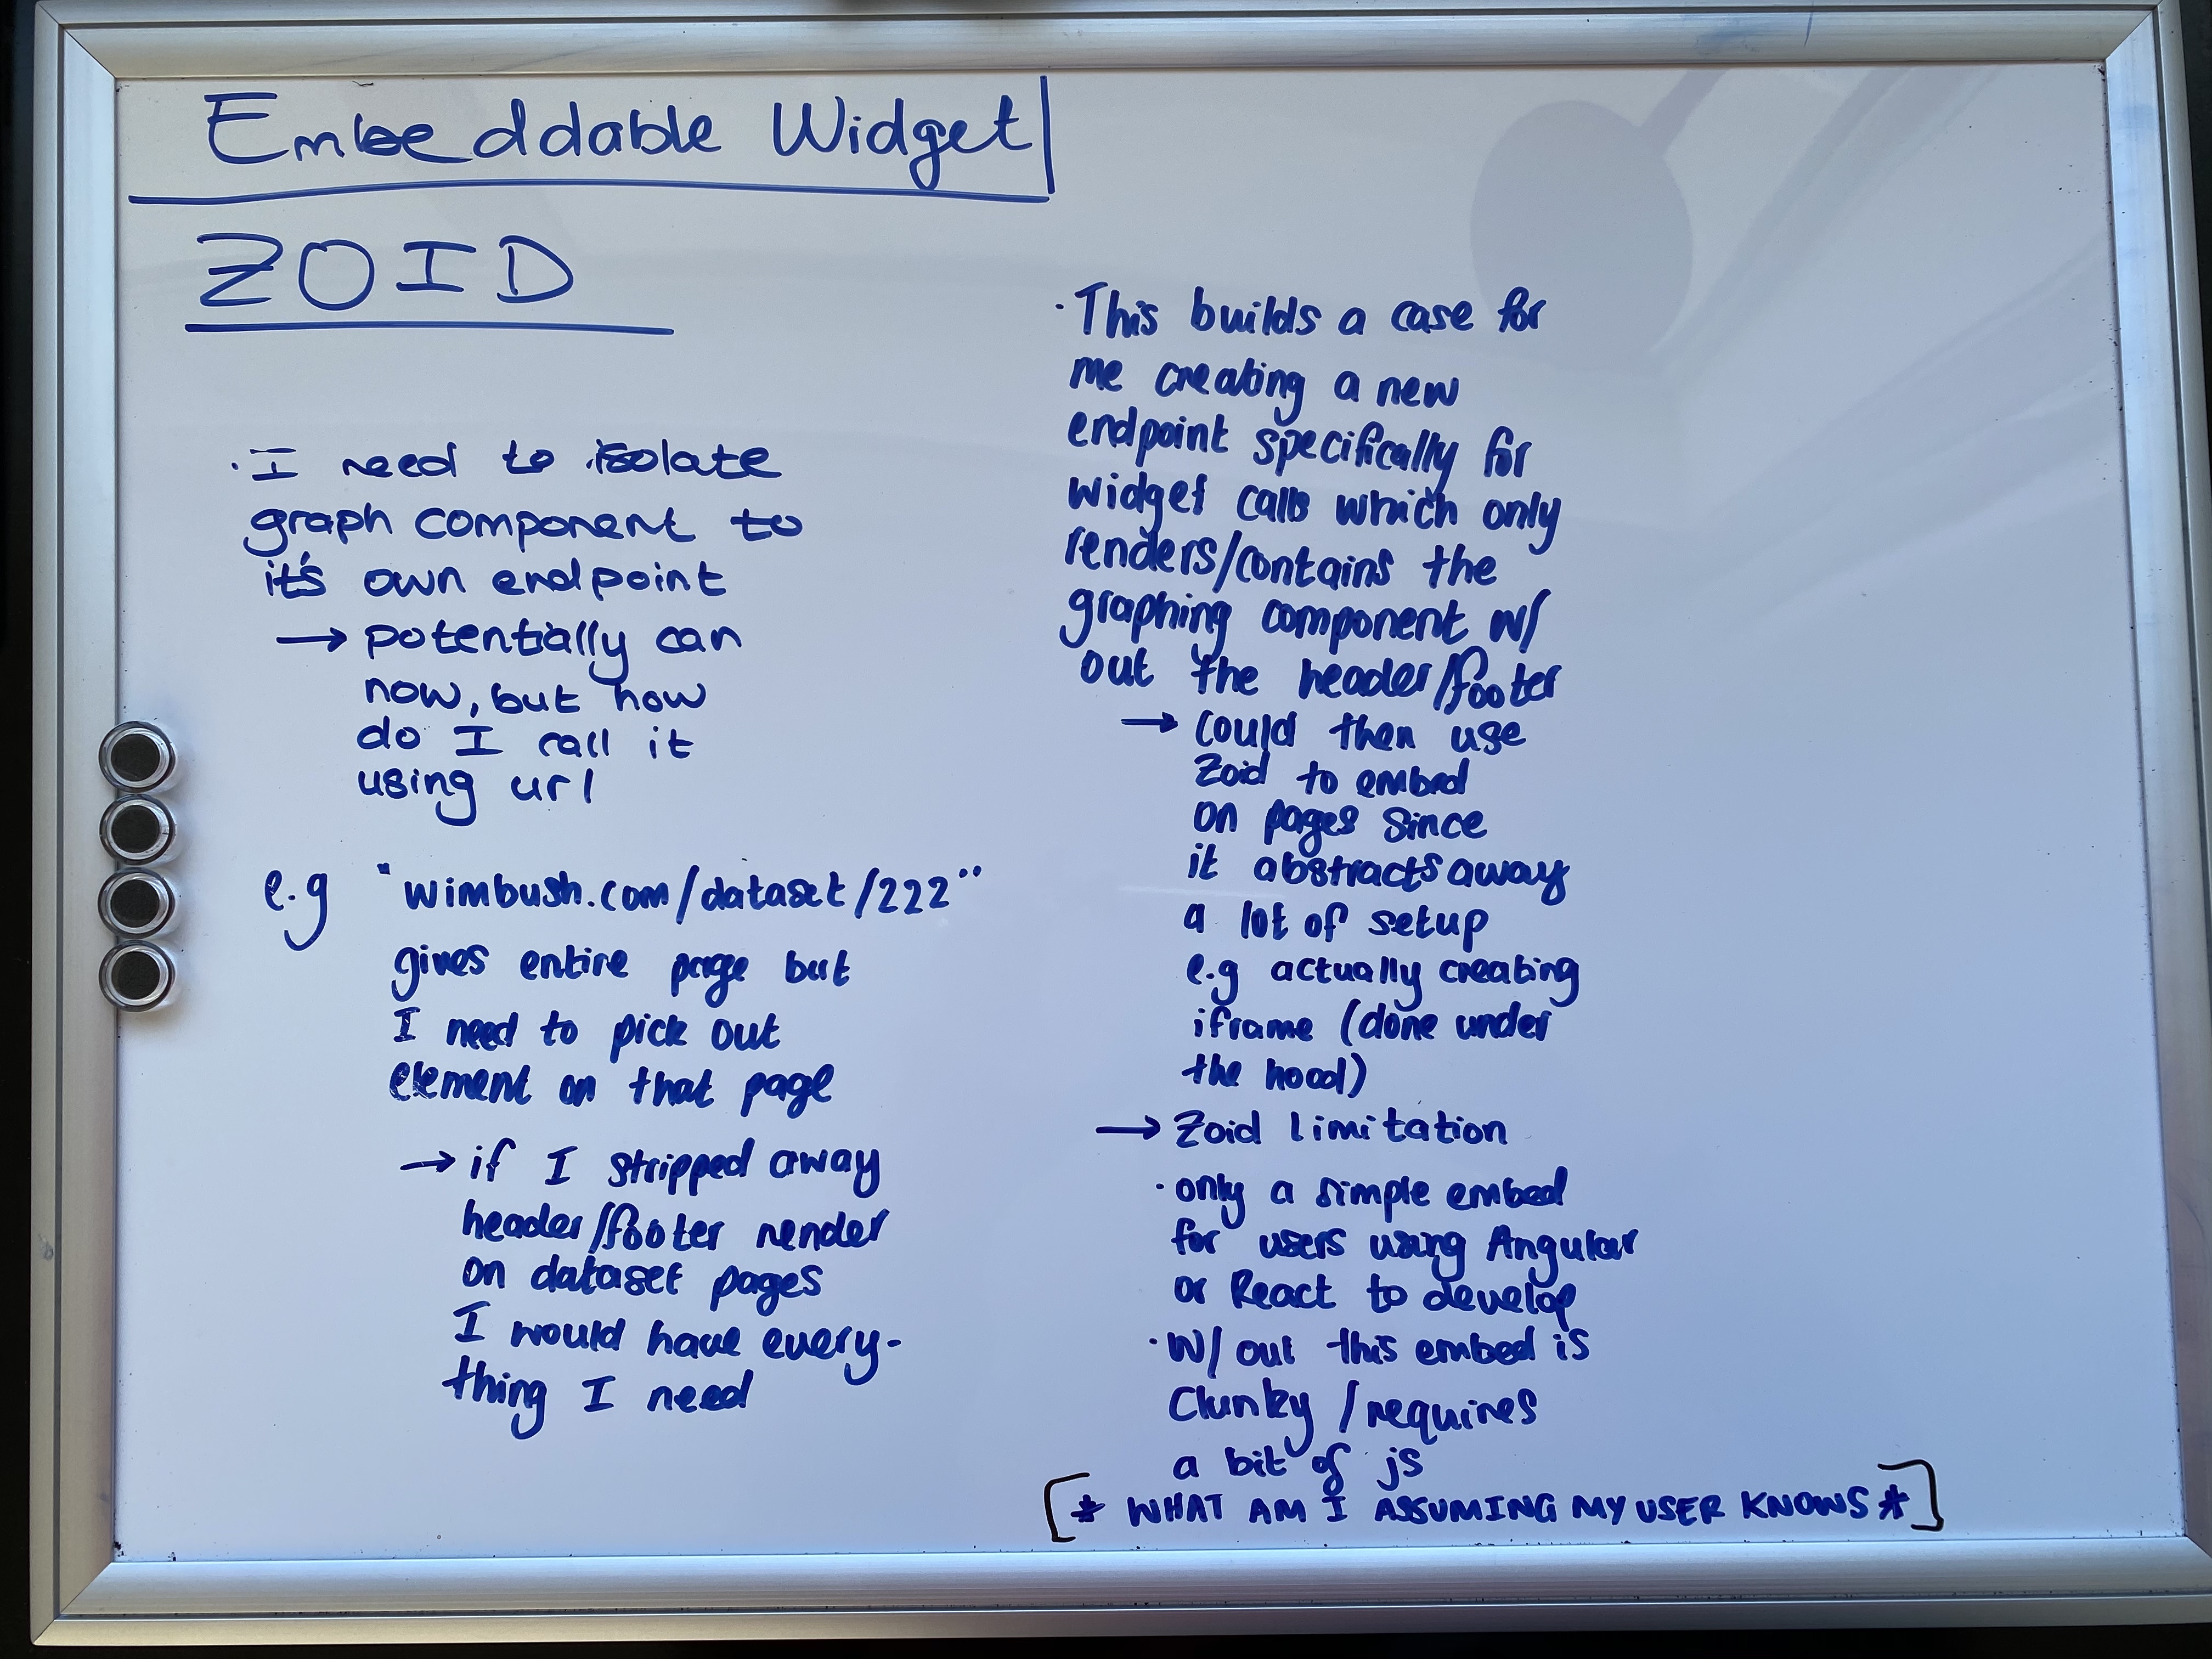 Embeddable Widget
ZOID
· I need to isolate
graph component to
it's own endpoint
→ potentially can
now, but how
do I call it
using url
e.g "wimbush.com/dataset/222"
gives entire page but
I need to pick out
element on that page
→ if I stripped away
header/footer render
on dataset pages
I would have every-
thing I need
· This builds a case for
me creating a new
endpoint specifically for
widget calls which only
renders/contains the
graphing component w/
out the header/footer
→ could then use
Zoid to embed
on pages since
it abstracts away
a lot of setup
e.g actually creating
iframe (done under
the hood)
→ Zoid limitation
· only a simple embed
for users using Angular
or React to develop
· W/ out this embed is
Clunky / requires
a bit of js
[* WHAT AM I ASSUMING MY USER KNOWS *]